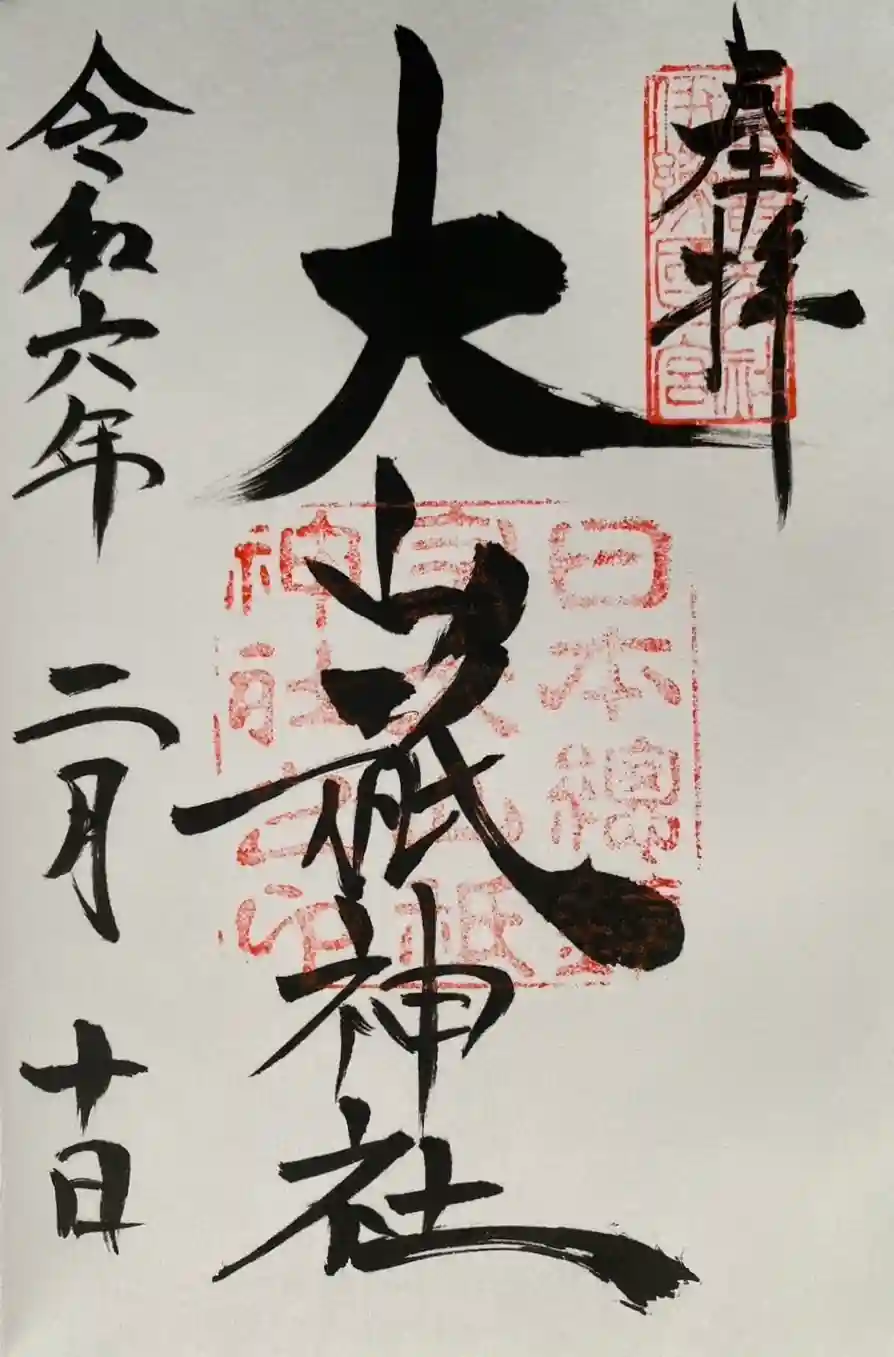 奉拝
伊豫國一宮
大山祇神社
日本總鎮
守大山祇
神社之印
令和六年二月十日